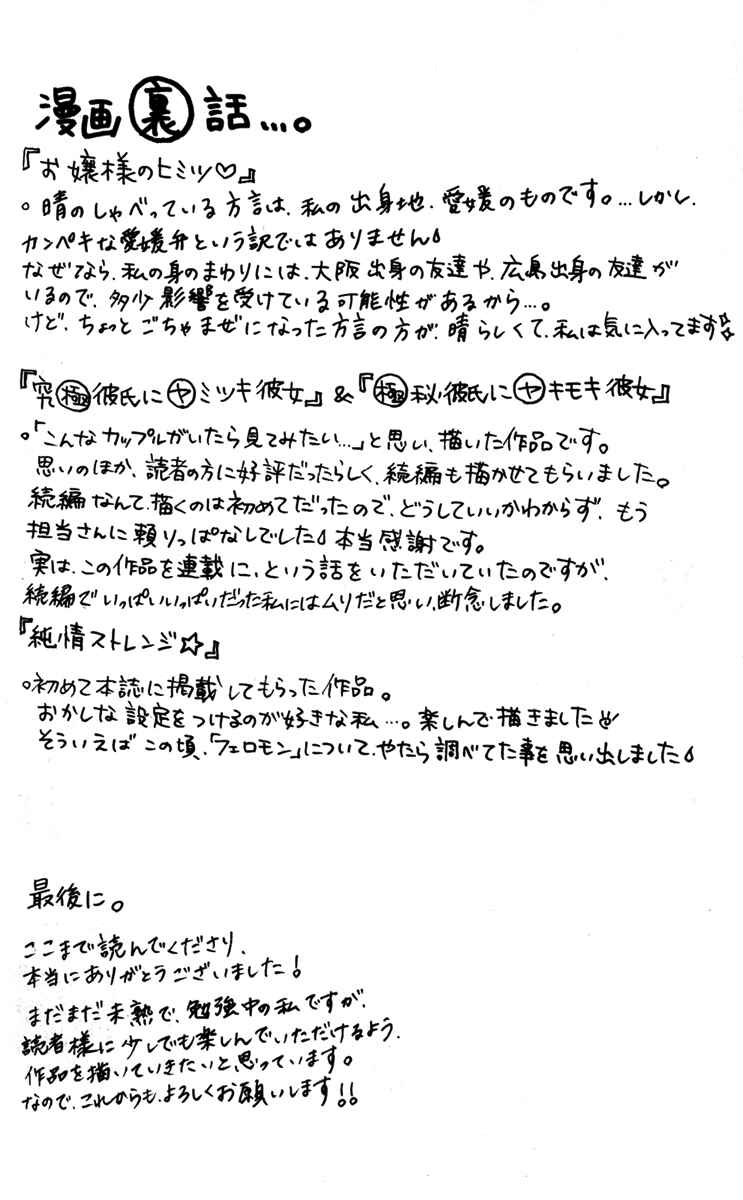 漫画㊙裏話…。
『お嬢様のヒミツ♡』
。晴のしゃべっている方言は、私の出身地、愛媛のものです。…しかし、
カンペキな愛媛弁という訳ではありません
なぜなら、私の身のまわりには、大阪出身の友達や、広島出身の友達が
いるので、多少影響を受けている可能性があるから…。
けど、ちょっとごちゃまぜになった方言の方が、晴らしくて、私は気に入ってます
『究極彼氏にヤミツキ彼女』&『極秘彼氏にヤキモキ彼女』
。「こんなカップルがいたら見てみたい…」と思い、描いた作品です。
思いのほか、読者の方に好評だったらしく、続編も描かせてもらいました。
続編なんて、描くのは初めてだったので、どうしていいかわからず、もう
担当さんに頼りっぱなしでした 本当感謝です。
実は、この作品を連載に、という話をいただいていたのですが、
続編でいっぱいいっぱいだった私にはムリだと思い、断念しました。
『純情ストレンジ☆』
。初めて本誌に掲載してもらった作品。
おかしな設定をつけるのが好きな私…。楽しんで描きました
そういえばこの頃、「フェロモン」について、やたら調べてた事を思い出しました
最後に。
ここまで読んでくださり、
本当にありがとうございました!
まだまだ未熟で、勉強中の私ですが、
読者様に少しでも楽しんでいただけるよう、
作品を描いていきたいと思っています。
なので、これからも、よろしくお願いします!!